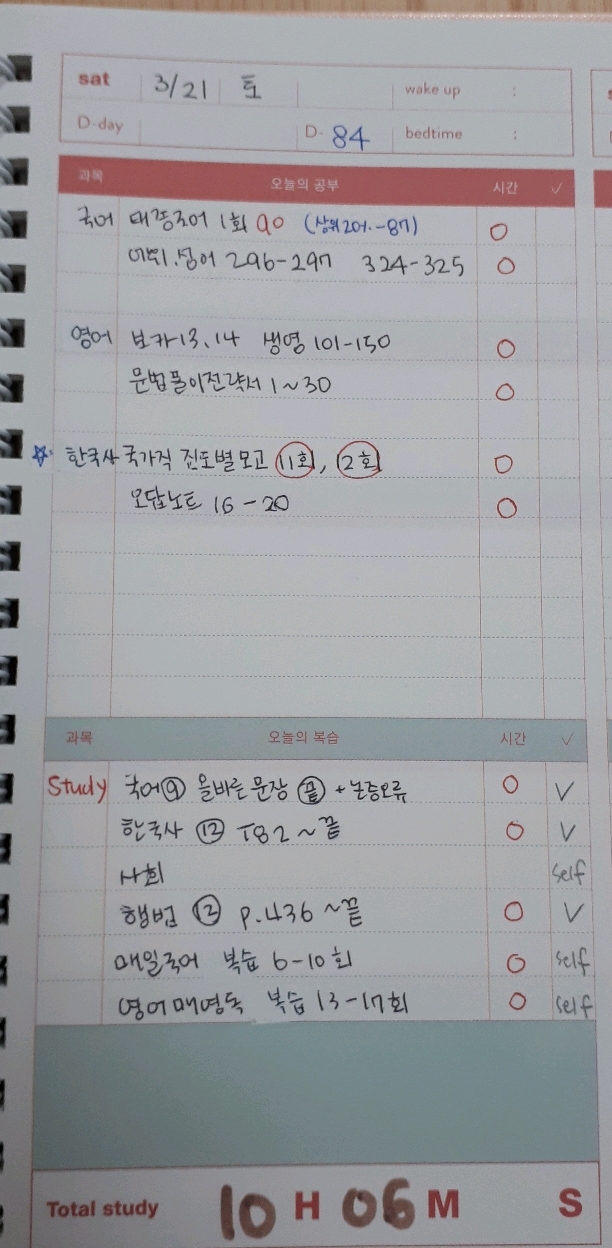 sat 3/21 토 wake up :
D-day D- 84 bedtime :
과목 오늘의 공부 시간 ✓
국어 대종국어 1회 90 (상위20%-87) O
어휘.넘어 296-297 324-325 O
영어 보카13.14 생영 101-150 O
문법풀이전략서 1~30 O
☆ 한국사 국가직 진도별모고 11회, 12회 O
오답노트 16-20 O
과목 오늘의 복습 시간 ✓
Study 국어⑨ 올바른 문장 끝 + 논증오류 O V
한국사 ⑫ T82~끝 O V
사회 self
행법 ⑫ p.436~끝 O V
매일국어 복습 6-10회 O self
영어매영독 복습 13-17회 O self
Total study 10 H 06 M S